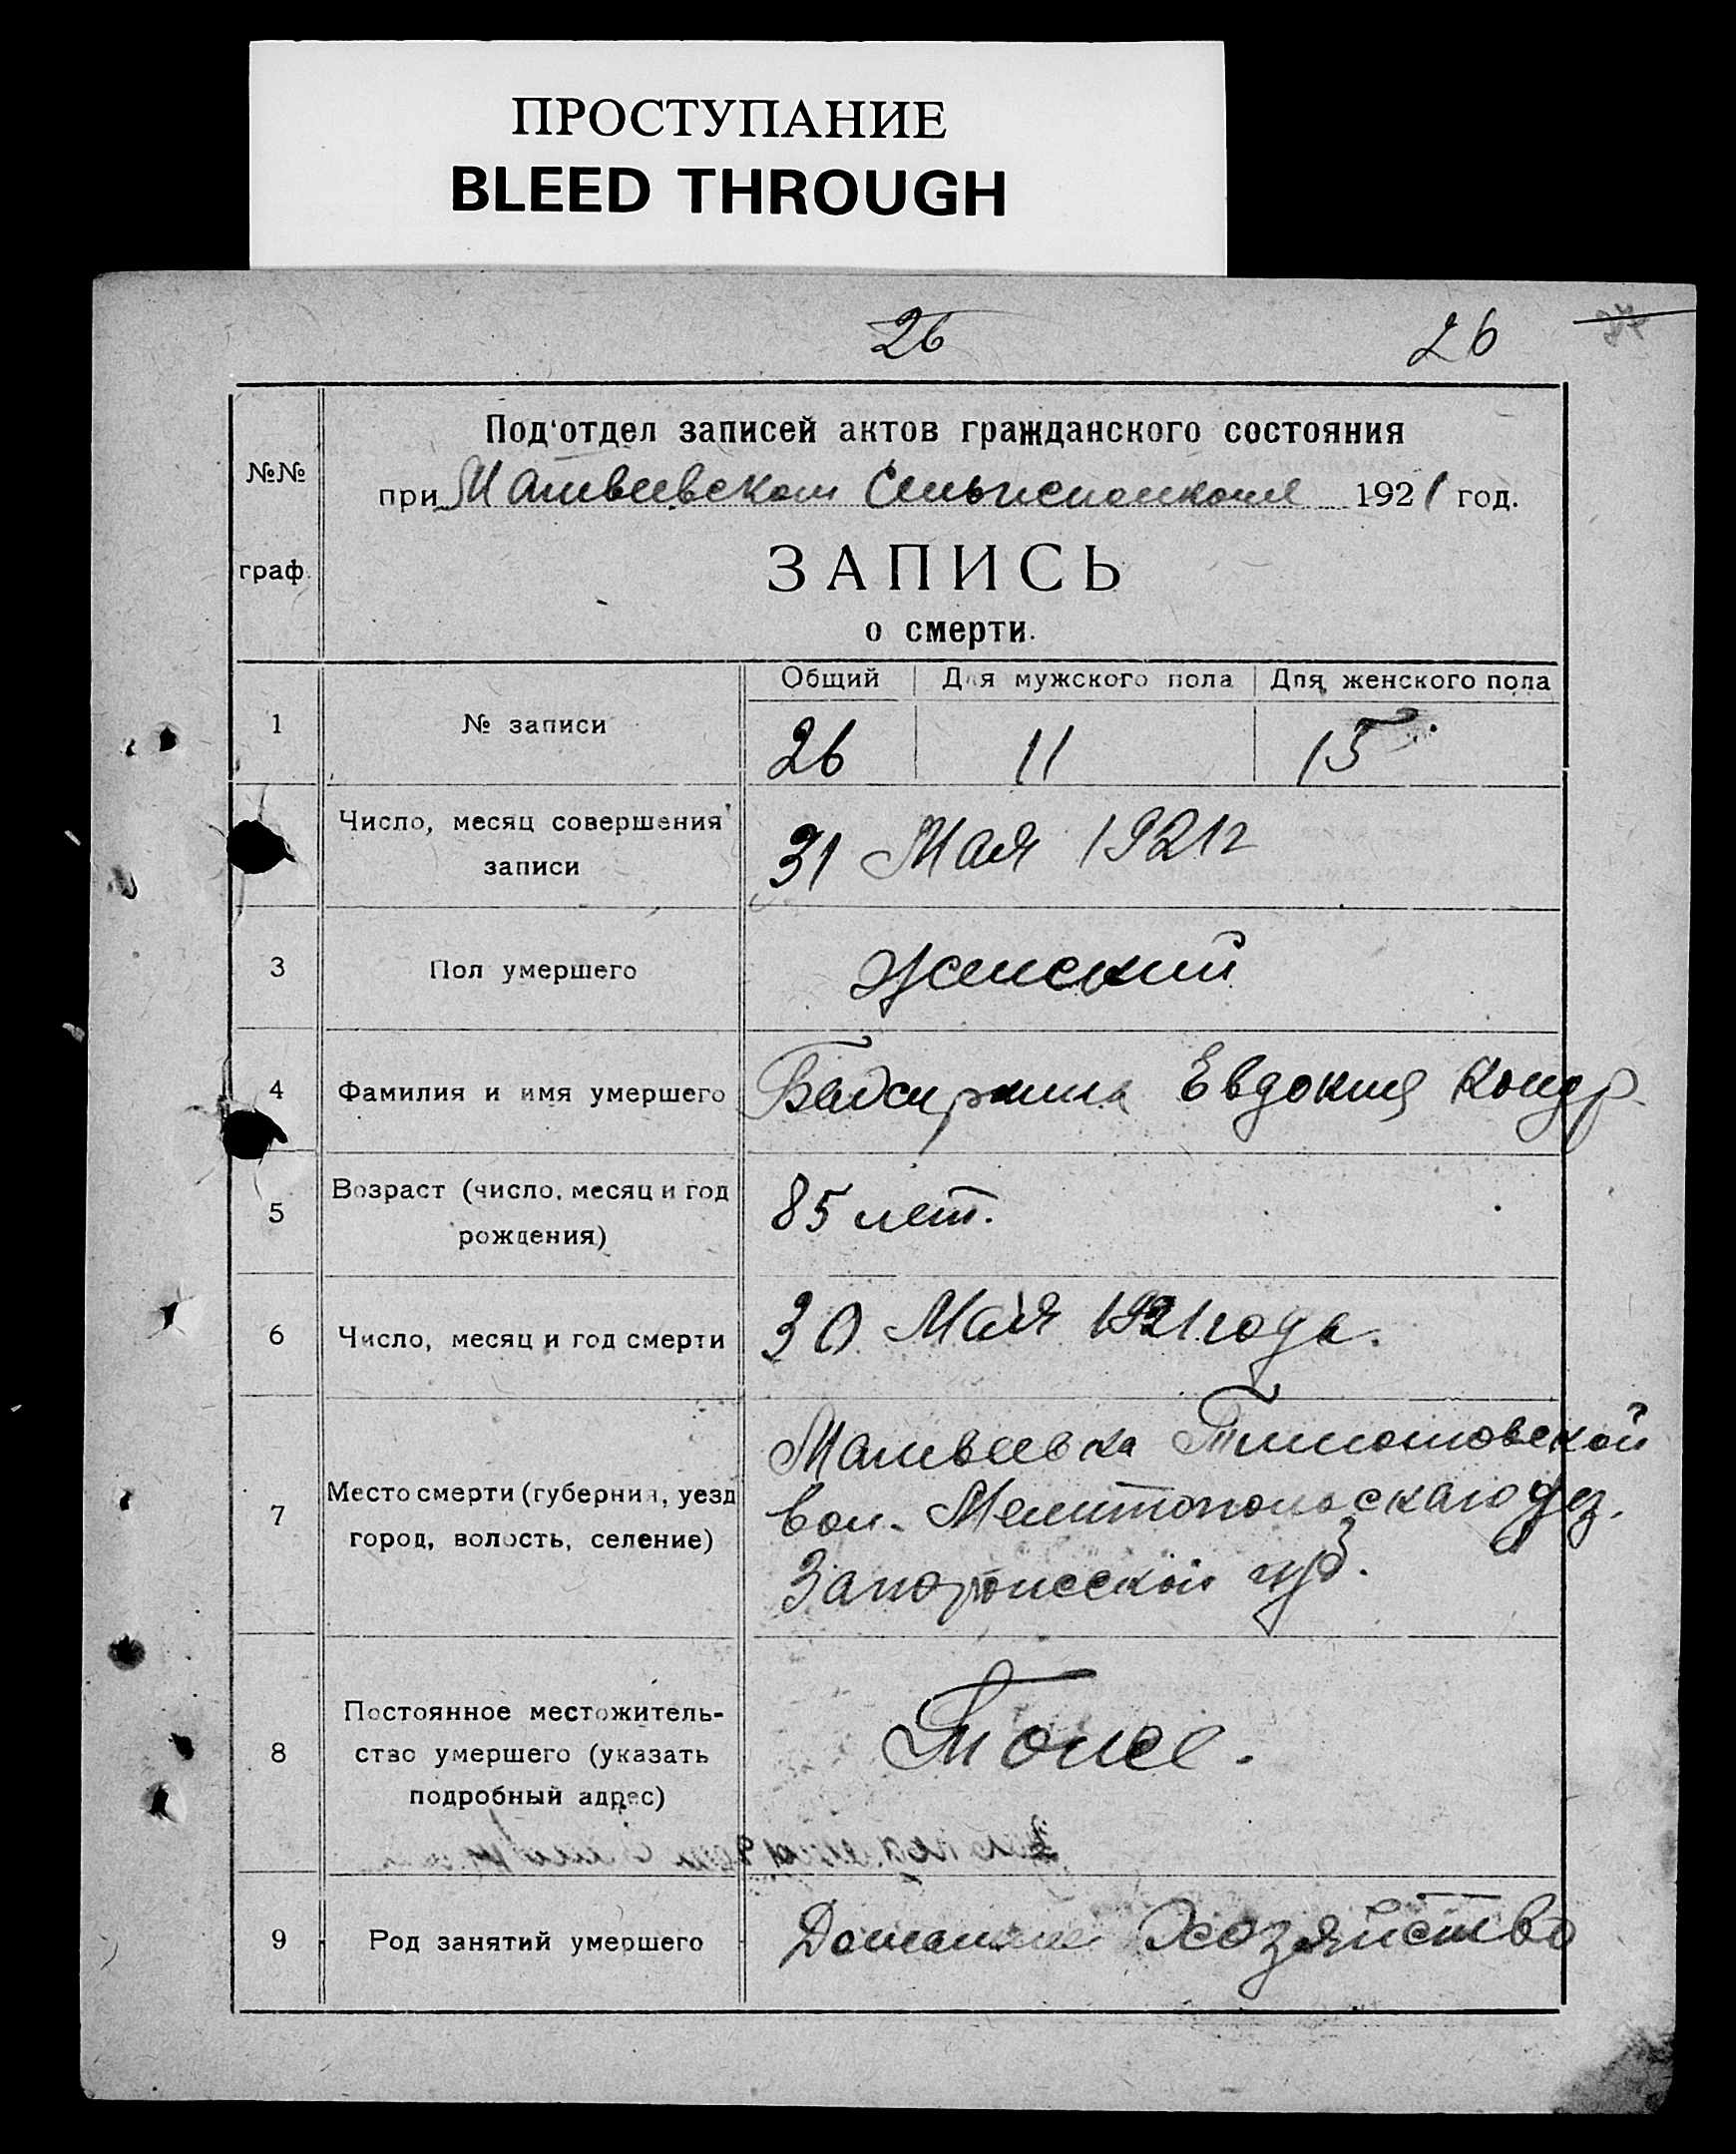 ПРОСТУПАНИЕ
BLEED THROUGH
26 26
Под'отдел записей актов гражданского состояния
№№
при Матвеевском Сельисполкоме 1921 год.
граф.
ЗАПИСЬ
о смерти.
Общий Для мужского пола Для женского пола
1 № записи 26 11 15
Число, месяц совершения
записи 31 Мая 1921 г
3 Пол умершего женский
4 Фамилия и имя умершего Евдокия Кондр.
Возраст (число, месяц и год
5 85 лет.
рождения)
6 Число, месяц и год смерти 30 Мая 1921 года.
Матвеевка Тимошовской
Место смерти (губерния, уезд
7 вол. Мелитопольскаго уез.
город, волость, селение)
Запорожской губ.
Постоянное местожитель-
8 ство умершего (указать Тоже.
подробный адрес)
9 Род занятий умершего Домашнее хозяйство